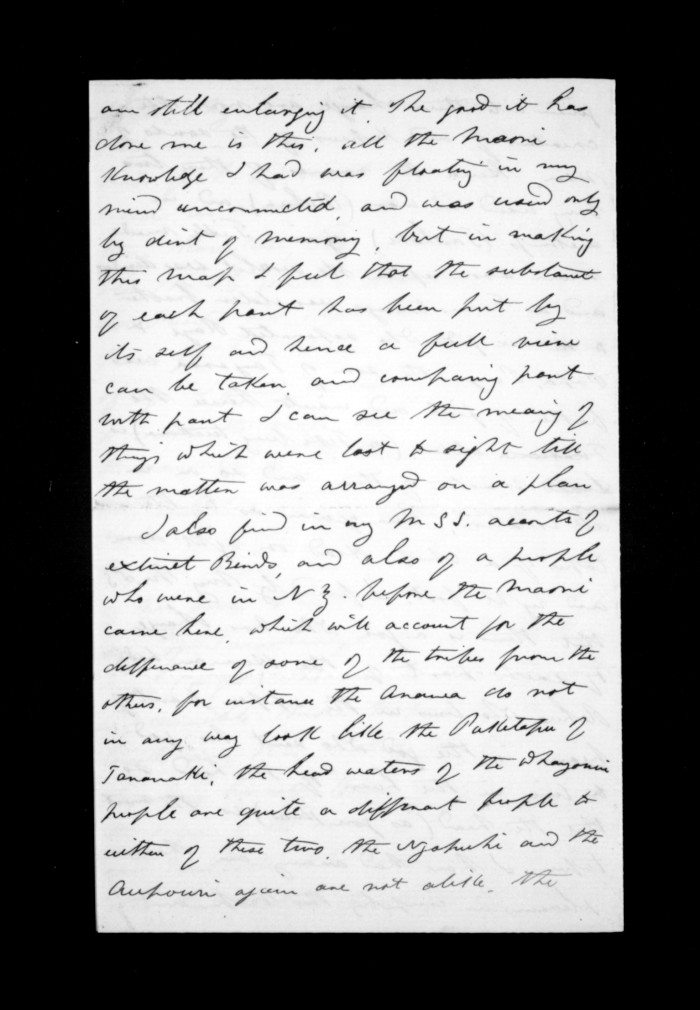 am still enlarging it. The good it has
done me is this, all the Maori
Knowledge I had was floating in my
mind unconnected, and was used only
by dint of memory, but in making
this map I feel that the substance
of each part has been put by
its self and hence a full view
can be taken and comparing part
with part I can see the meaing of
things which were lost to sight till
the matter was arranged on a plan
I also find in my MSS. accounts of
extinct Birds, and also of a people
who were in N Z. before the Maori
came here, which will account for the
difference of some of the tribes from the
others, for instance the Arawa do not
in any way look like the Paketapu of
Taranaki, the head waters of the Whanganui
people are quite a different people to
either of these two, the Ngapuhi and the
Aupouri again are not alike, the